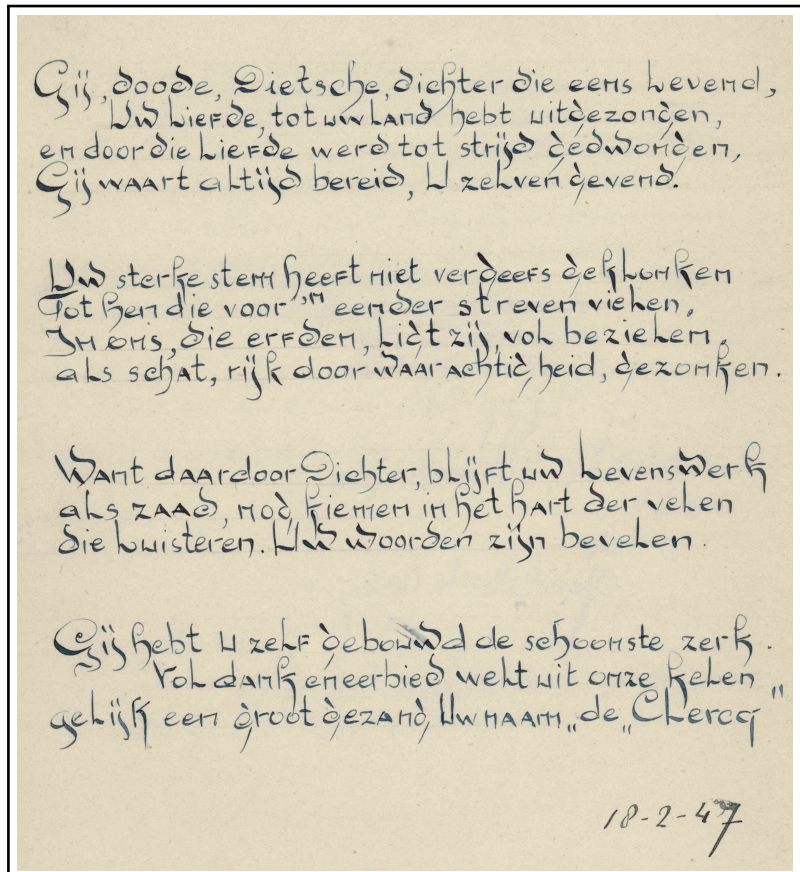 Gij, doode, Dietsche, dichter die eens levend,
Uw liefde, tot uw land hebt uitgezongen,
en door die liefde werd tot strijd gedwongen,
Gij waart altijd bereid, U zelven gevend.
Uw sterke stem heeft niet vergeefs geklonken
Tot hen die voor 'n eender streven vielen.
In ons, die erfden, ligt zij, vol bezielen,
als schat, rijk door waarachtigheid, gezonken.
Want daardoor Dichter, blijft uw levenswerk
als zaad, nog kiemen in het hart der velen
die luisteren. Uw woorden zijn bevelen.
Gij hebt U zelf gebouwd de schoonste zerk.
Vol dank en eerbied welt uit onze kelen
gelijk een groot gezang, Uw naam „de „Clercq"
18-2-47